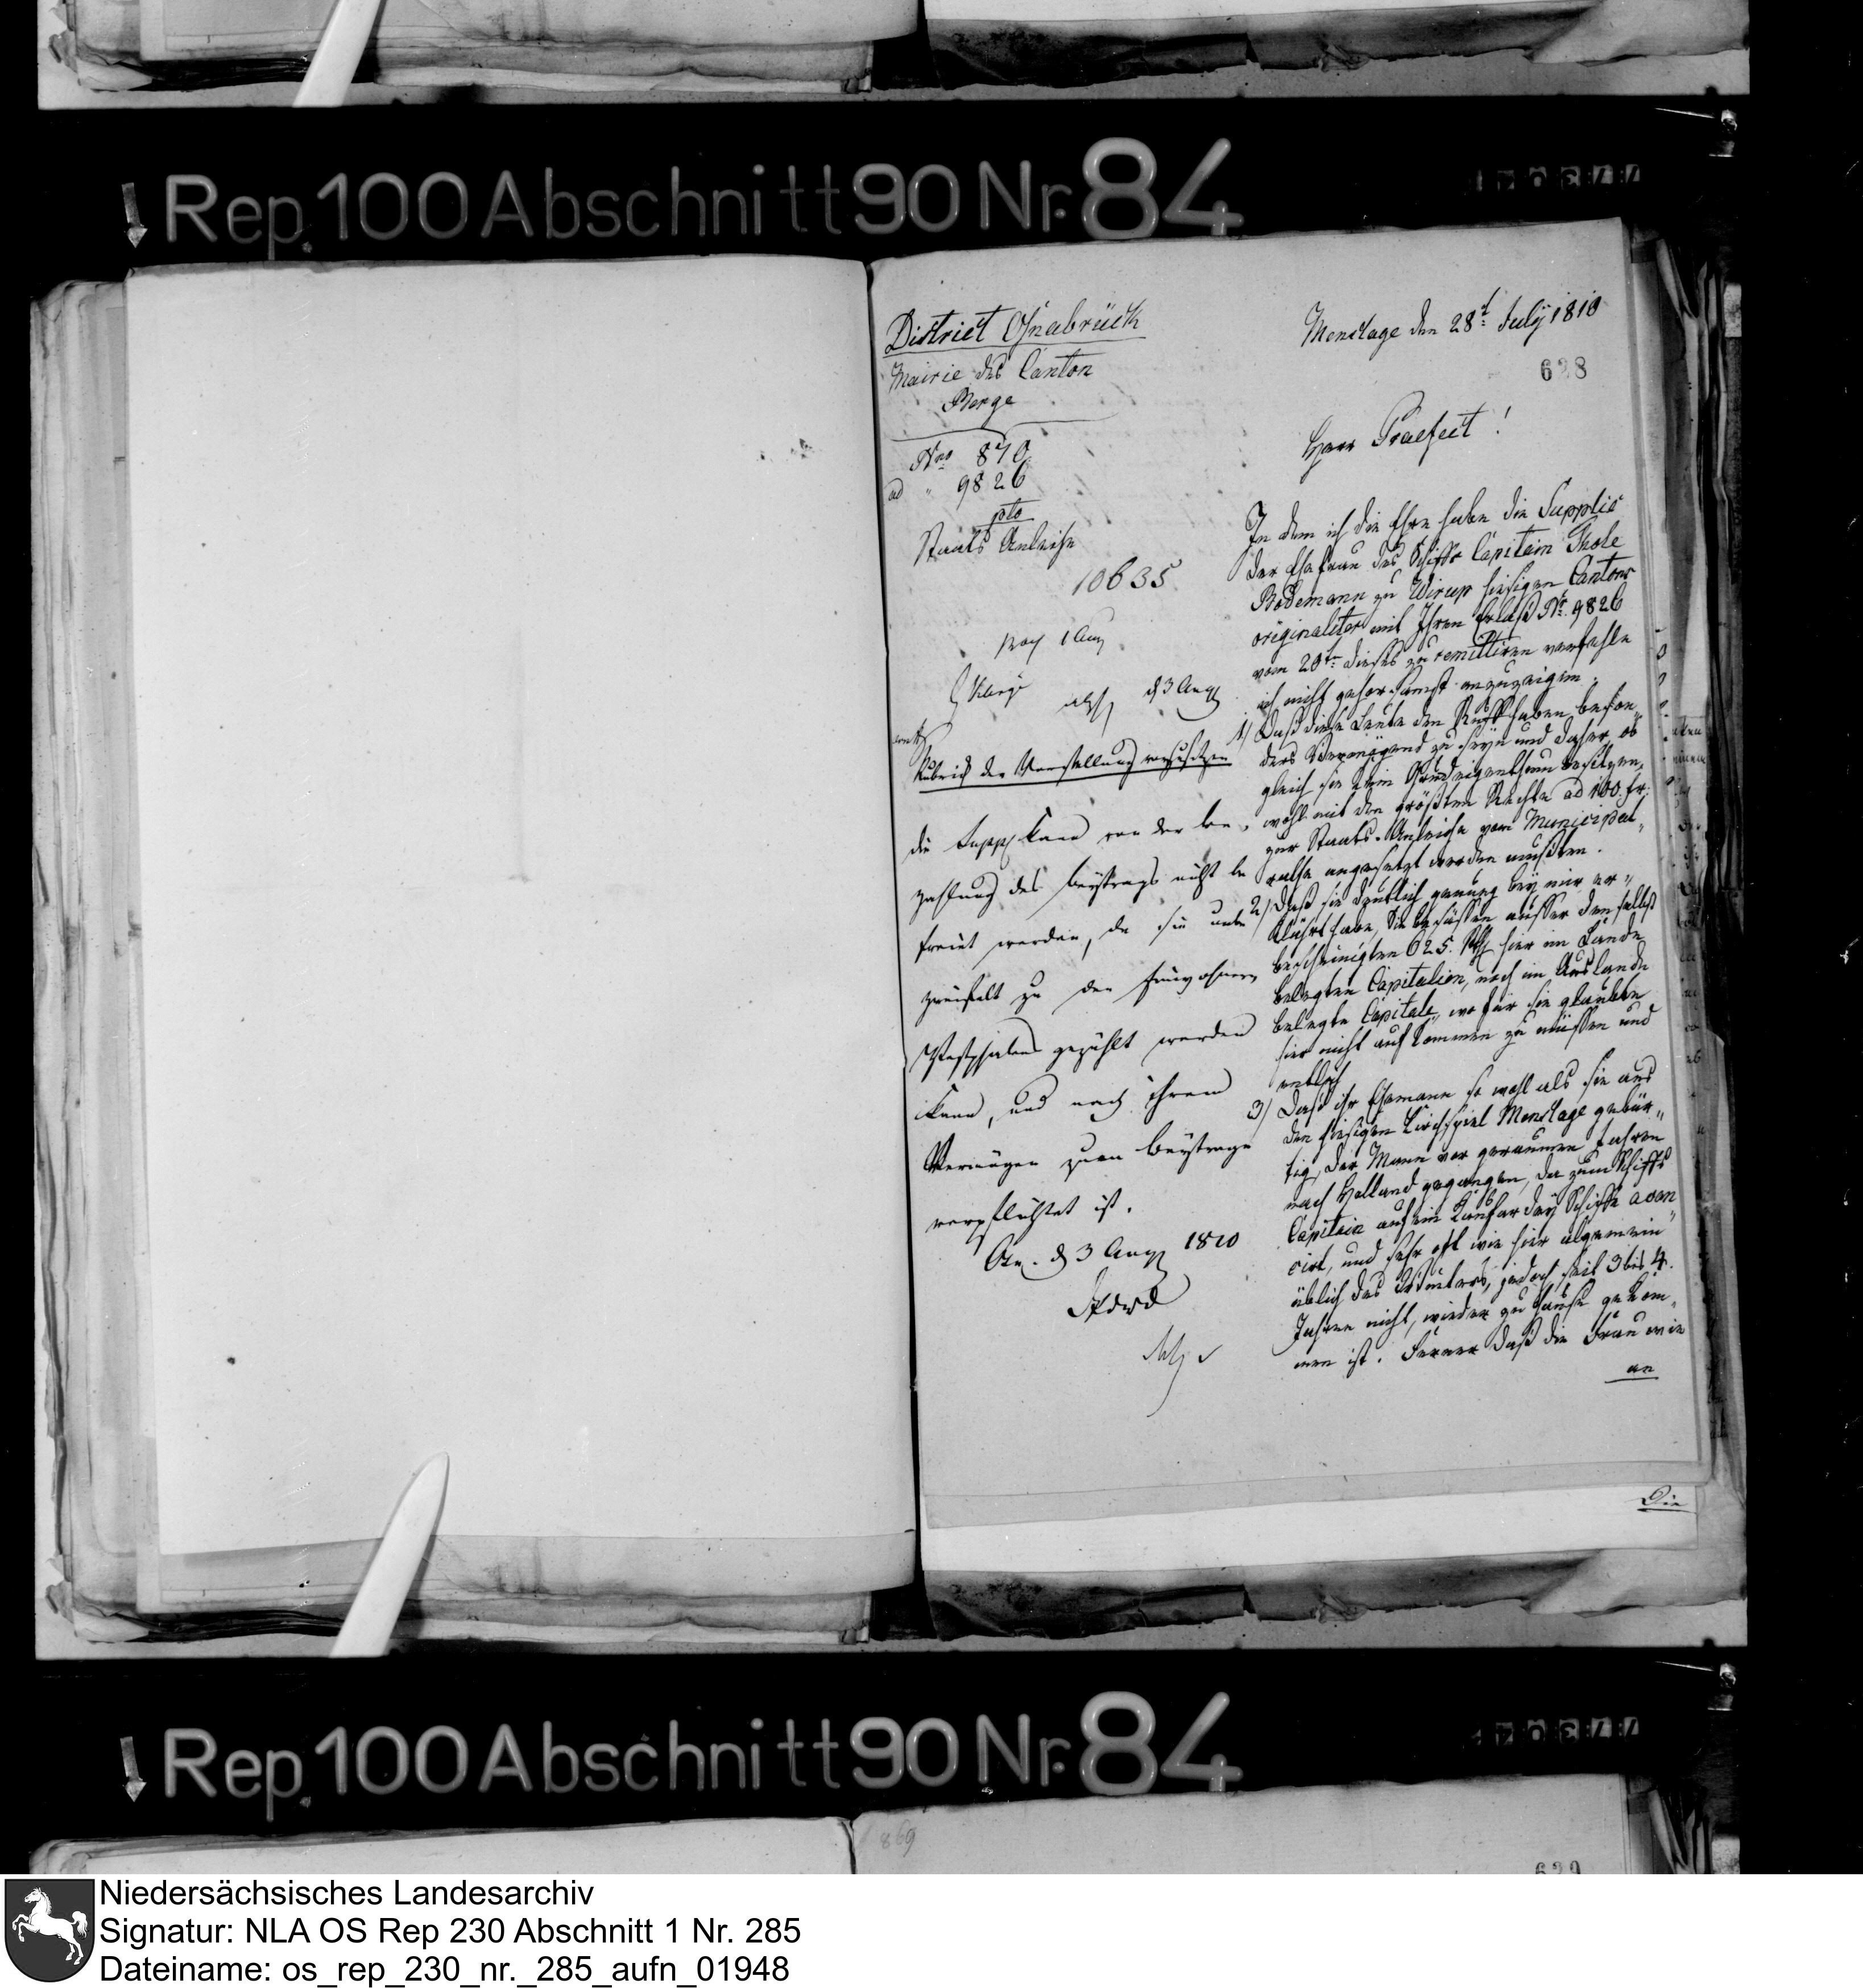 Rep. 100 Abschnitt 90 Nr. 84
District Osnabrück
Mairie des Canton
Berge
Nro 870
ad " 9826
pto
Staats Anleihe
10635
1 Aug
d 3 Aug
Rubrick der Vorstellung vorzusetzen
die Suppl kann von der Be
zahlung des Beytrags nicht be
freiet werden, da sie unbe
zweifelt zu den Einwohnern
Westphalens gezählt werden
kann, und nach ihrem
Vermögen zum Beytrage
verpflichtet ist.
Osn. d 3 Aug 1810
Menslage den 28t July 1810
628
Herr Praefect!
In dem ich die Ehre habe die Supplic
der Ehefrau des Schiffs Capitain Thole
Bodemann zu Wierup hiesigen Cantons
originaliter mit Ihren Erlaß Nr. 9826
vom 20ten dieses zu remittiren verfehle
ich nicht gehorsamst anzuzeigen.
1) Daß diese Leute den Ruff haben beson"
ders Vermögend zu seyn und daher, ob
gleich sie kein Grundeigenthum besitzen,
wohl mit den größten Rechte ad 100 fr.
zur Staats-Anleihe vom Municipal"
rathe angesetzt werden mußten.
2) Daß sie deutlich genung bey mir er"
klährt habe, Sie besässen ausser den selbst
bescheinigten 625. Rthl hier im Lande
belegten Capitalien, noch im Auslande
belegte Capitale, wofür sie glaubte
hier nicht aufkommen zu müssen und
endlich
3) Daß ihr Ehemann so wohl als sie aus
den hiesigen Kirchspiel Menslage gebür"
tig, der Mann vor geraumen Jahren
nach Holland gegangen, da zum Schiffs
Capitain auf ein Kaufardey Schiffe avan"
cirt, und sehr oft wie hier algemein
üblich des Winters, jedoch seit 3 bis 4.
Jahren nicht, wieder zu Hause gekom"
men ist. Ferner daß die Frau wie
an
Die
Rep. 100 Abschnitt 90 Nr. 84
869
629
Niedersächsisches Landesarchiv
Signatur: NLA OS Rep 230 Abschnitt 1 Nr. 285
Dateiname: os_rep_230_nr._285_aufn_01948